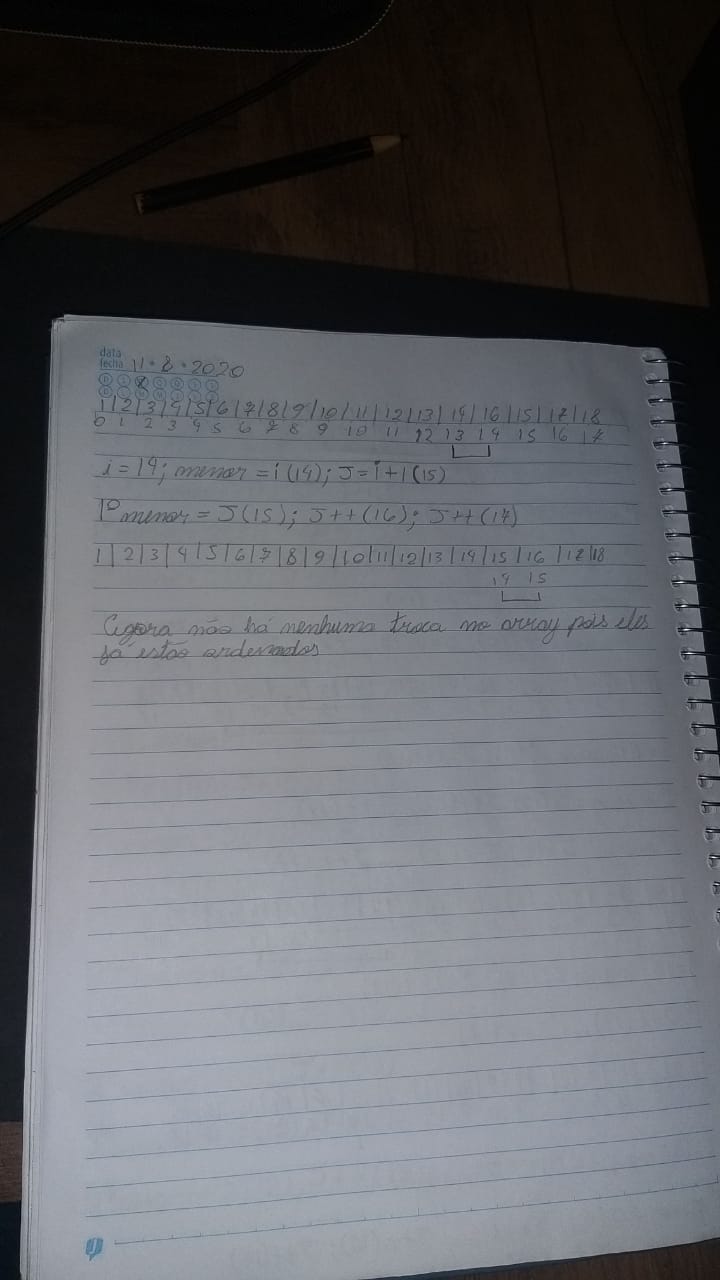 data
fecha 11・8・2020
1|2|3|4|5|6|7|8|9|10|11|12|13|14|16|15|17|18
0 1 2 3 4 5 6 7 8 9 10 11 12 13 14 15 16 17
i=14; menor = i(14); J=i+1(15)
1º menor = J(15); J++(16); J++(17)
1|2|3|4|5|6|7|8|9|10|11|12|13|14|15|16|17|18
14 15
Agora não há nenhuma troca no array pois eles
já estão ordenados